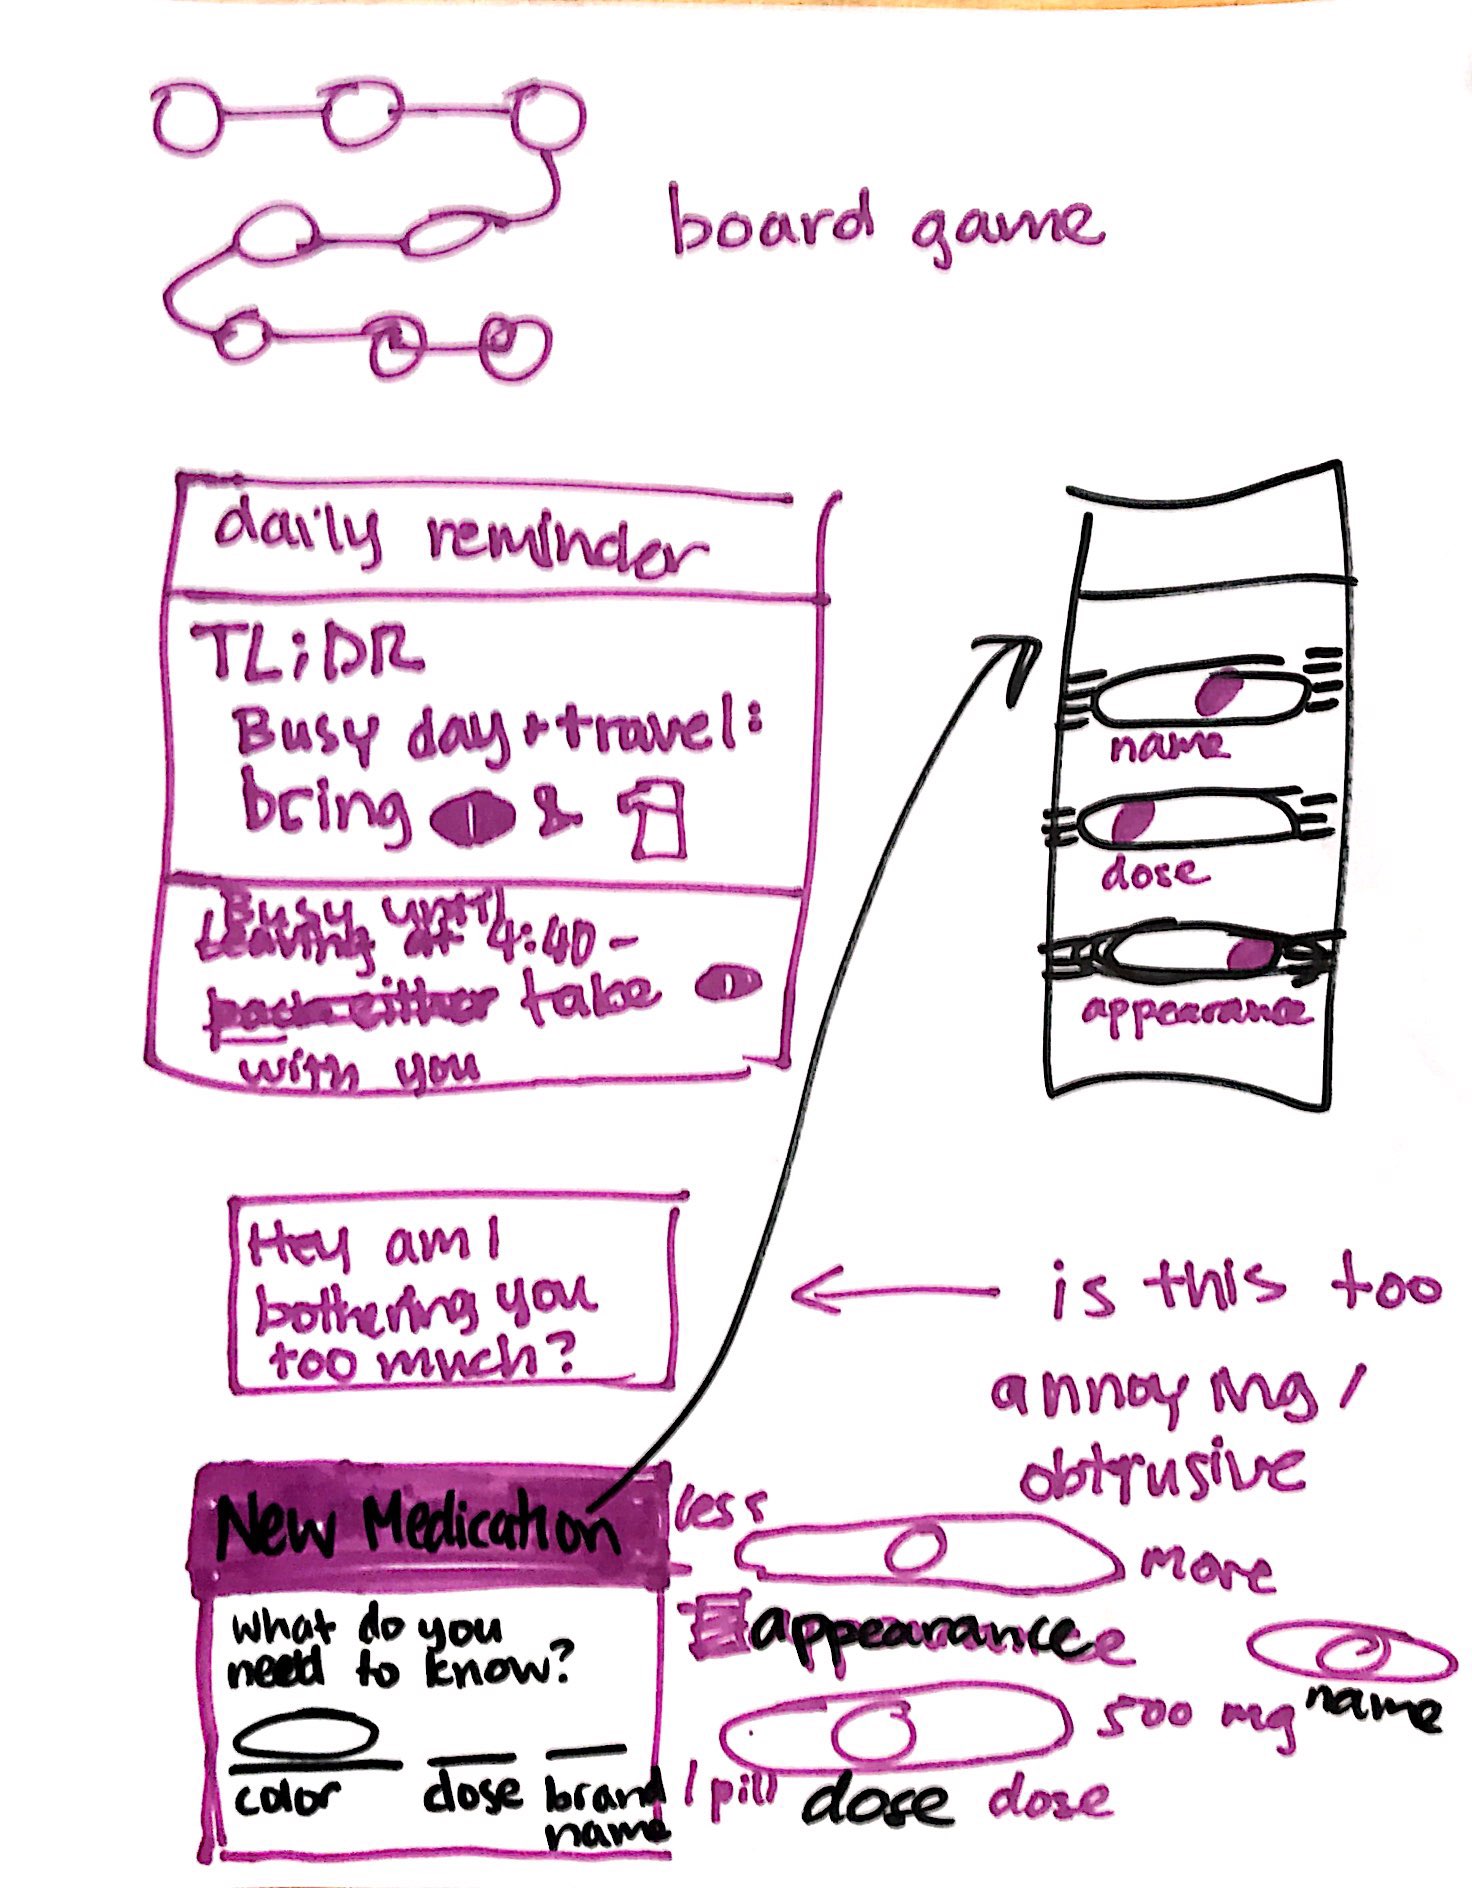 board game
daily reminder
TL;DR
Busy day + travel:
bring & 
Busy until
Leaving at 4:40 -
pack either take
with you
name
dose
appearance
Hey am I
bothering you
too much?
is this too
annoying /
obtrusive
New Medication
What do you
need to know?
color dose brand
name
less
more
appearance
name
500 mg
1 pill dose dose